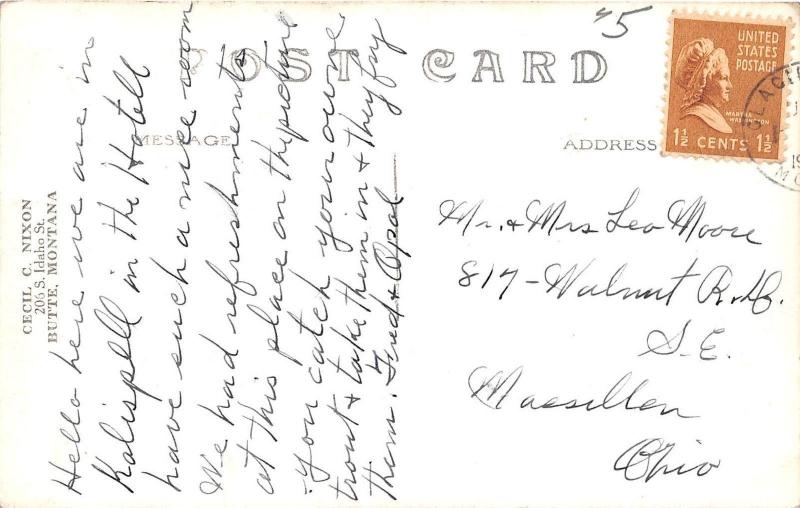 POST CARD
45
UNITED
STATES
POSTAGE
MARTHA
WASHINGTON
1½ CENTS 1½
GLACI
19
MO
MESSAGE
ADDRESS
CECIL C. NIXON
206 S. Idaho St.
BUTTE, MONTANA
Hello here we are in
Kalispell in the Hotell
have such a nice room
We had refreshments
at this place on the picture
you catch your own
trout & take them in & they fry
them. Fred & Opal
Mr. & Mrs Leo Moore
817- Walnut Rd.
S.E.
Massillon
Ohio